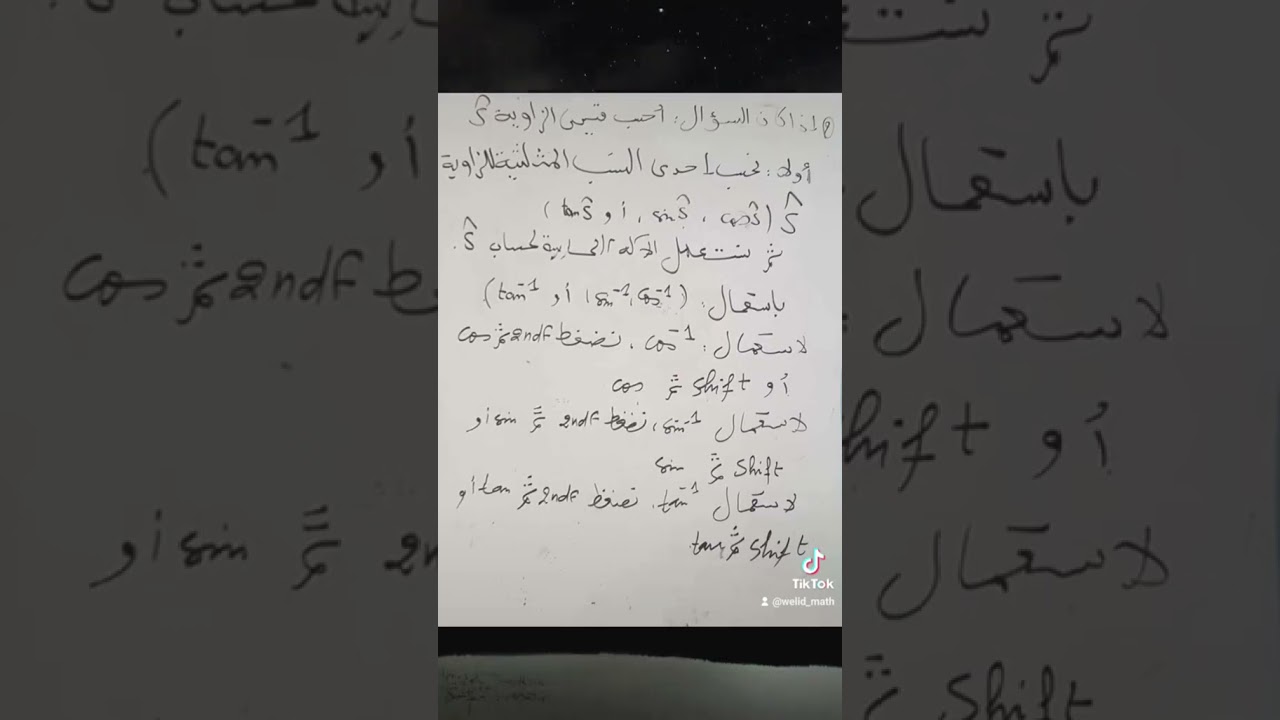 إذا كان السؤال: أحسب قيس الزاوية Ŝ
أولا: نحسب إحدى النسب المثلثية للزاوية
Ŝ (cosŜ ، sinŜ ، أو tanŜ)
ثم نستعمل الآلة الحاسبة لحساب Ŝ.
باستعمال: (cos⁻¹، sin⁻¹ أو tan⁻¹)
لاستعمال: cos⁻¹، نضغط 2ndf ثم cos
أو shift ثم cos
لاستعمال sin⁻¹، نضغط 2ndf ثم sin أو
shift ثم sin
لاستعمال tan⁻¹، نضغط 2ndf ثم tan أو
shift ثم tan
TikTok
@welid_math